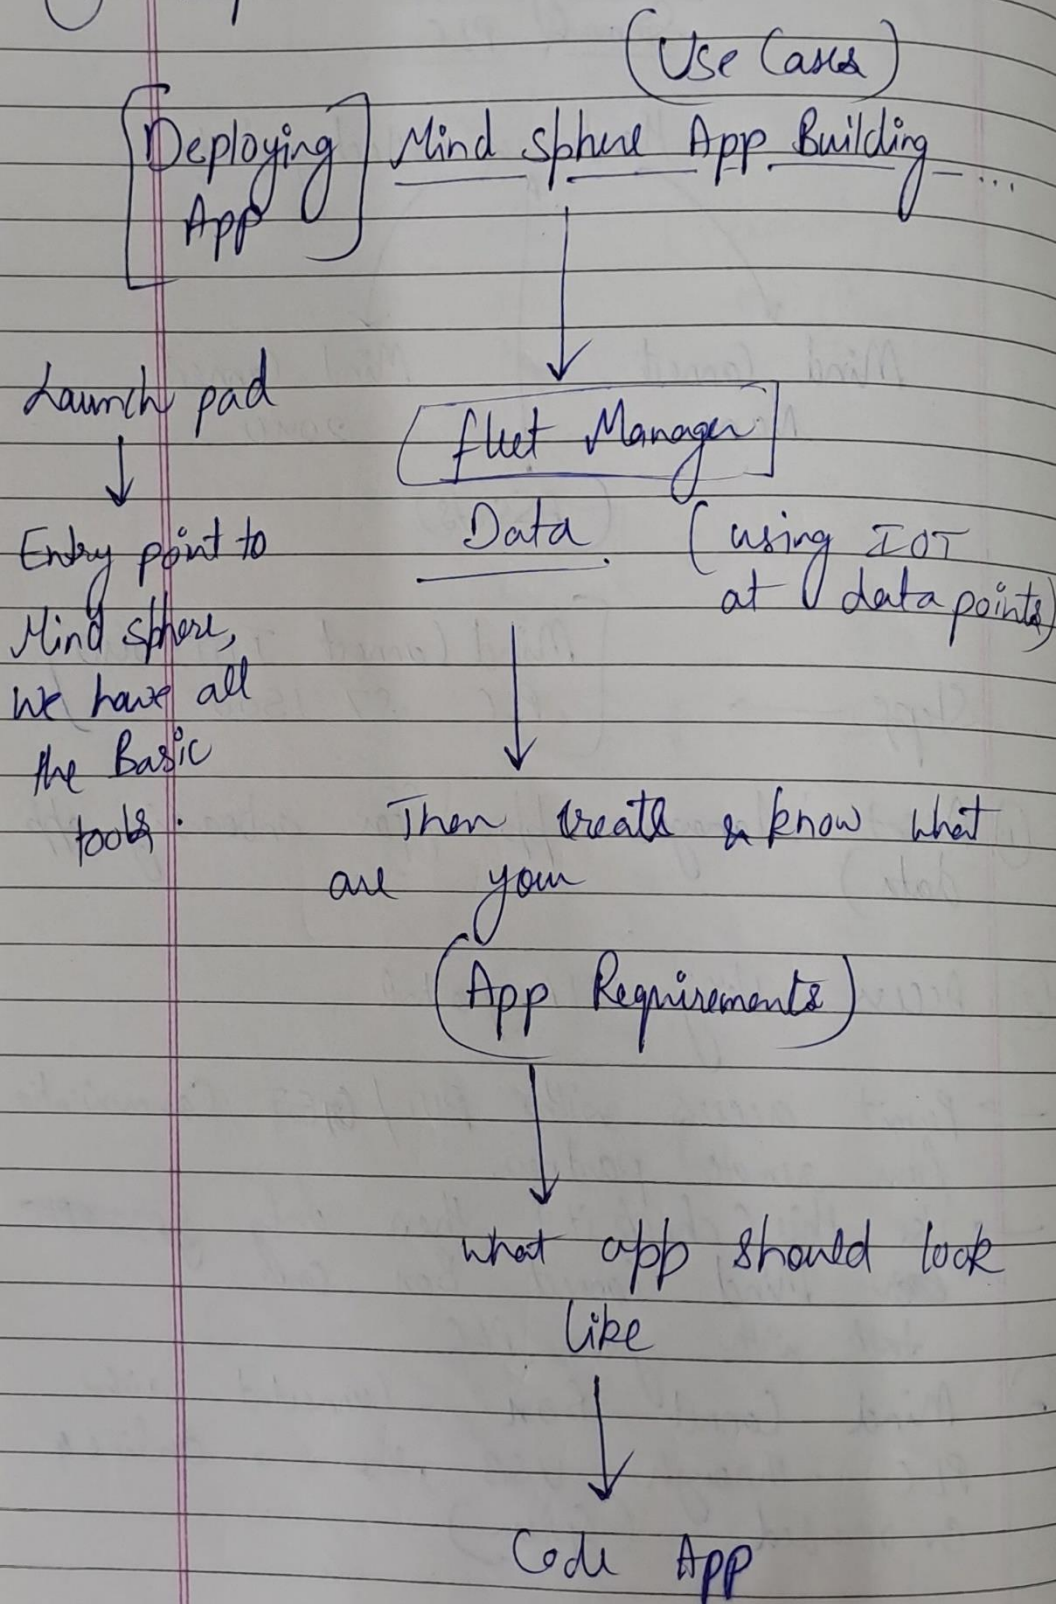 (Use Cases)
[Deploying App] Mind Sphere App Building - ...
Launch pad
Entry point to
Mind sphere,
We have all
the Basic
tools.
[fleet Manager]
Data. (using IOT
at data points)
Then create & know what
are your
(App Requirements)
what app should look
like
Code App